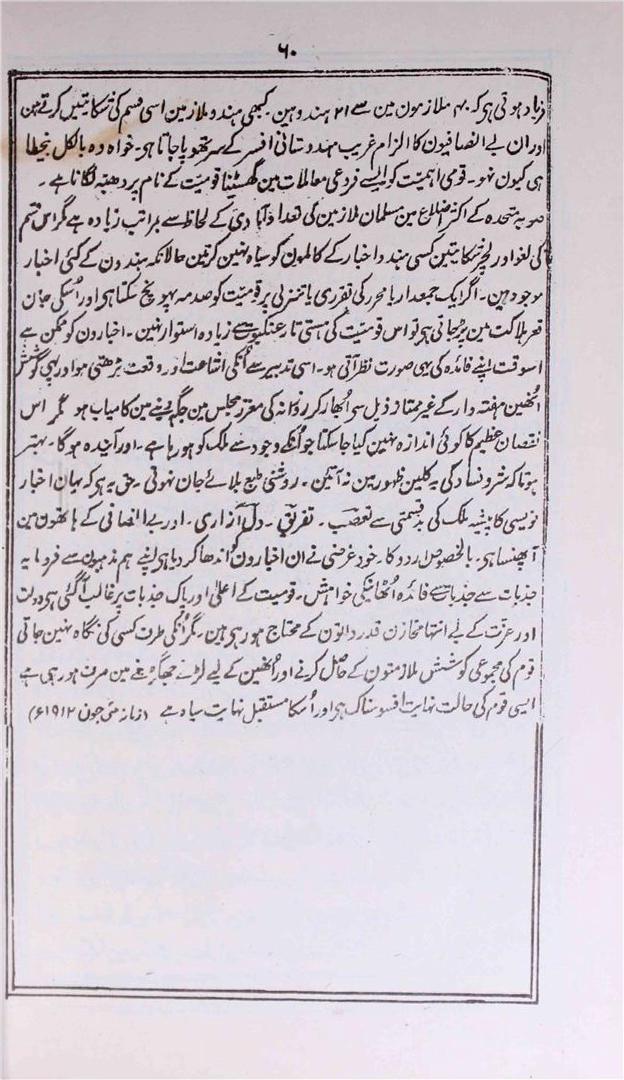 ۶۰
فریاد ہوتی ہی کہ ۴۰ ملازمون مین سے ۲۱ ہندو ہین۔ کبھی ہندو ملازمین اسی قسم کی شکایتین کرتے ہین
اور ان بے انصافیون کا الزام غریب ہندوستانی افسر کے سر تھوپا جاتا ہی۔ خواہ وہ بالکل بیخطا
ہی کیون نہو۔ قومی اہمیت کو ایسے فروعی معاملات مین گھسیٹنا قومیت کے نام پر دھبہ لگانا ہے۔
صوبہ متحدہ کے اکثر اضلاع مین مسلمان ملازمین کی تعداد آبادی کے لحاظ سے بمراتب زیادہ ہے مگر اس قسم
کی لغو اور لچر شکایتین کسی ہندو اخبار کے کالمون کو سیاہ نہین کرتین حالانکہ ہندون کے کئی اخبار
موجود ہین۔ اگر ایک جمعدار یا محرر کی تقرری یا تنزلی پر قومیت کو صدمہ پہونچ سکتا ہی اور اُسکی جان
قعر ہلاکت مین پڑ جاتی ہی تو اس قومیت کی ہستی تار عنکبوت سے زیادہ استوار نہین۔ اخبارون کو ممکن ہے
اسوقت اپنے فائدہ کی یہی صورت نظر آتی ہو۔ اسی تدبیر سے اُنکی اشاعت اور وقعت بڑھتی ہو اور یہی کوشش
اُنھین ہفتہ وار کے غیر ممتاز ذیل سی اُٹھا کر روزانہ کی معزز مجلس مین جگہ دینے مین کامیاب ہو مگر اس
نقصان عظیم کا کوئی اندازہ نہین کیا جا سکتا جو اُنکے وجود سے ملک کو ہو رہا ہے۔ اور آیندہ ہوگا۔ بہتر
ہوتا کہ شر و فساد کی یہ کلین ظہور مین نہ آتین۔ روشنی طبع بلائے جان نہوتی۔ حق یہ ہی کہ یہان اخبار
نویسی کا پیشہ ملک کی بدقسمتی سے تعصب۔ تفریق۔ دل آزاری۔ اور بے انصافی کے ہاتھون مین
آ پھنسا ہی۔ بالخصوص اردو کا۔ خود غرضی نے ان اخبارون کو اندھا کر دیا ہی اپنے ہم مذہبون سے فرومایہ
جذبات سے جذبات سے فائدہ اُٹھانیکی خواہش۔ قومیت کے اعلیٰ اور پاک جذبات پر غالب آ گئی ہی دولت
اور عزت کے لیے انتہا مخازن قدر دانون کے محتاج ہو رہی ہین۔ مگر اُنکی طرف کسی کی نگاہ نہین جاتی
قوم کی مجموعی کوشش ملازمتون کے حاصل کرنے اور اُنھین کے لیے لڑنے جھگڑنے مین صرف ہو رہی ہے
ایسی قوم کی حالت نہایت افسوسناک ہی اور اُسکا مستقبل نہایت سیاہ ہے (زمانہ مئی جون ۱۹۱۲ء)